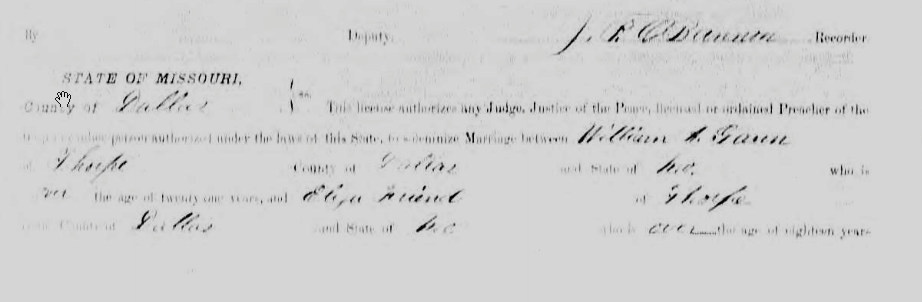 By Deputy. Recorder
STATE OF MISSOURI,
County of Dallas ss. This license authorizes any Judge, Justice of the Peace, licensed or ordained Preacher of the
Gospel or other person authorized under the laws of this State, to solemnize Marriage between William A. Gann
of Thorpe County of Dallas and State of Mo. who is
over the age of twenty-one years, and Eliza Friend of Thorpe
in the County of Dallas and State of Mo who is over the age of eighteen years